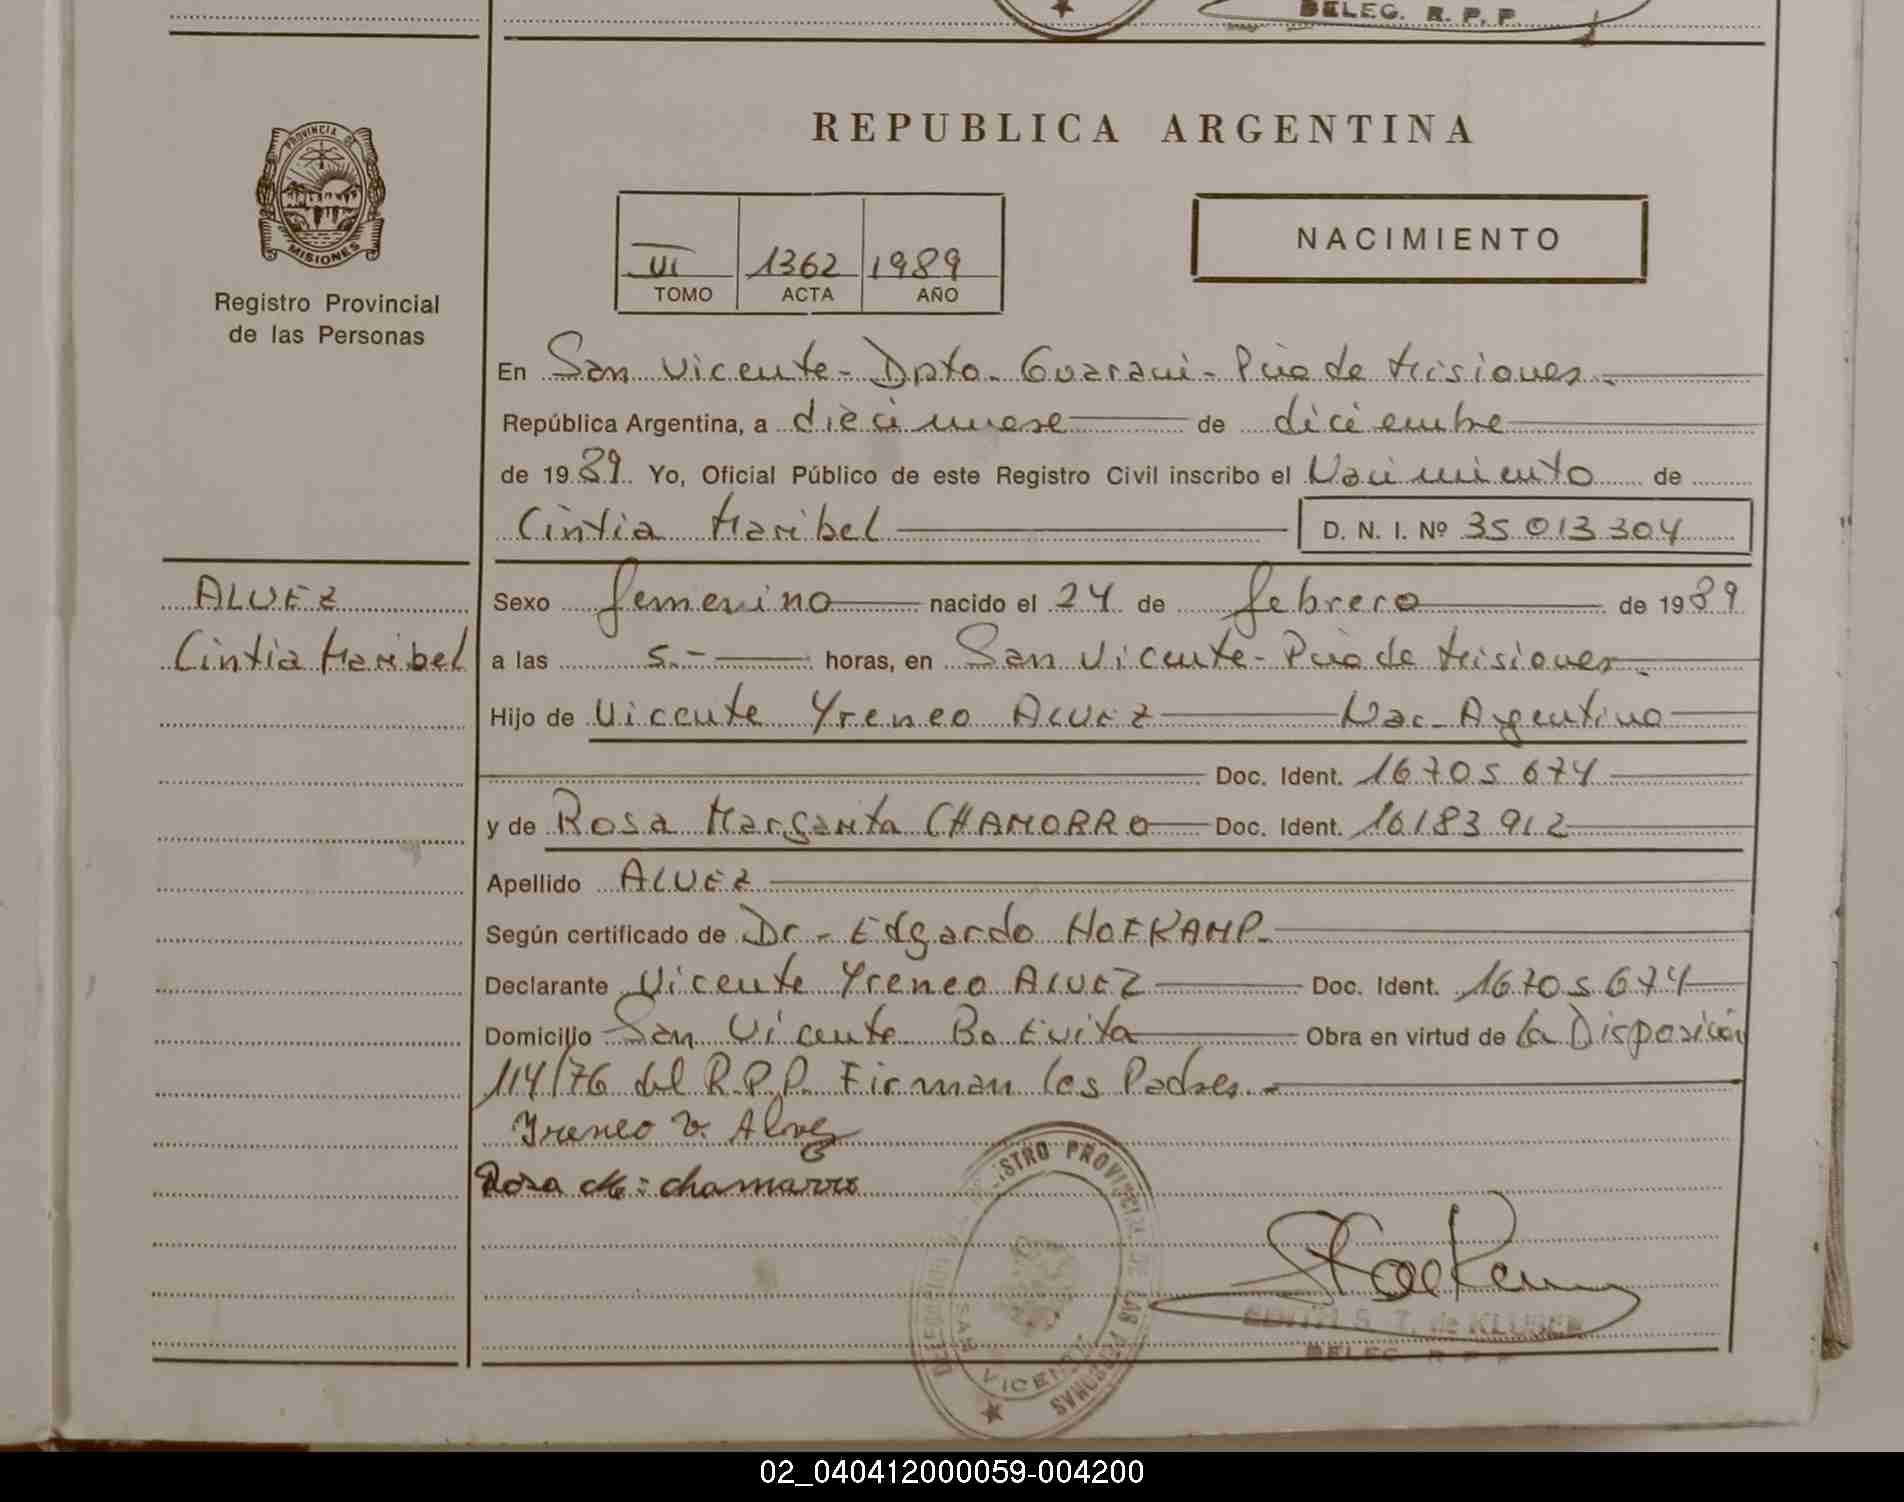 DELEG. R. P. P.
PROVINCIA DE
MISIONES
Registro Provincial
de las Personas
REPUBLICA ARGENTINA
VI 1362 1989
TOMO ACTA AÑO
NACIMIENTO
En San Vicente - Dpto. Guarani - Pcia de Misiones.
República Argentina, a diecinueve de diciembre
de 1989. Yo, Oficial Público de este Registro Civil inscribo el Nacimiento de
Cintia Maribel D. N. I. Nº 35.013.304
ALVEZ
Cintia Maribel
Sexo femenino nacido el 24 de febrero de 1989
a las 5.- horas, en San Vicente - Pcia de Misiones.
Hijo de Vicente Yreneo ALVEZ Nac. Argentino
Doc. Ident. 16.705.674
y de Rosa Margarita CHAMORRO Doc. Ident. 16.183.912
Apellido ALVEZ
Según certificado de Dr. Edgardo HOFKAMP.
Declarante Vicente Yreneo ALVEZ Doc. Ident. 16.705.674
Domicilio San Vicente Bo Evita Obra en virtud de la Disposición
114/76 del R.P.P. Firman los Padres.
Yreneo V. Alvez
Rosa M. Chamorro
DELEGACION REGISTRO PROVINCIAL DE LAS PERSONAS
SAN VICENTE
S. Z. de KLUNER
DELEG. R P P
02_040412000059-004200